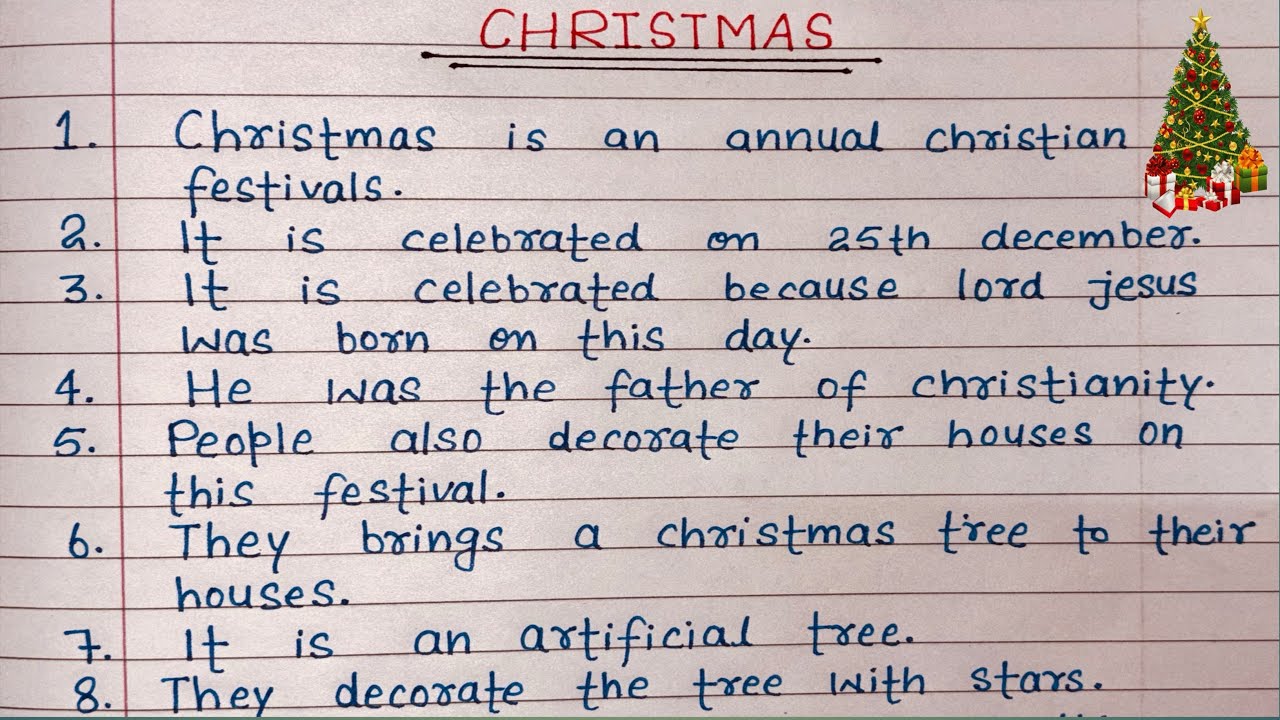 CHRISTMAS
1. Christmas is an annual christian
festivals.
2. It is celebrated on 25th december.
3. It is celebrated because lord jesus
was born on this day.
4. He was the father of christianity.
5. People also decorate their houses on
this festival.
6. They brings a christmas tree to their
houses.
7. It is an artificial tree.
8. They decorate the tree with stars.